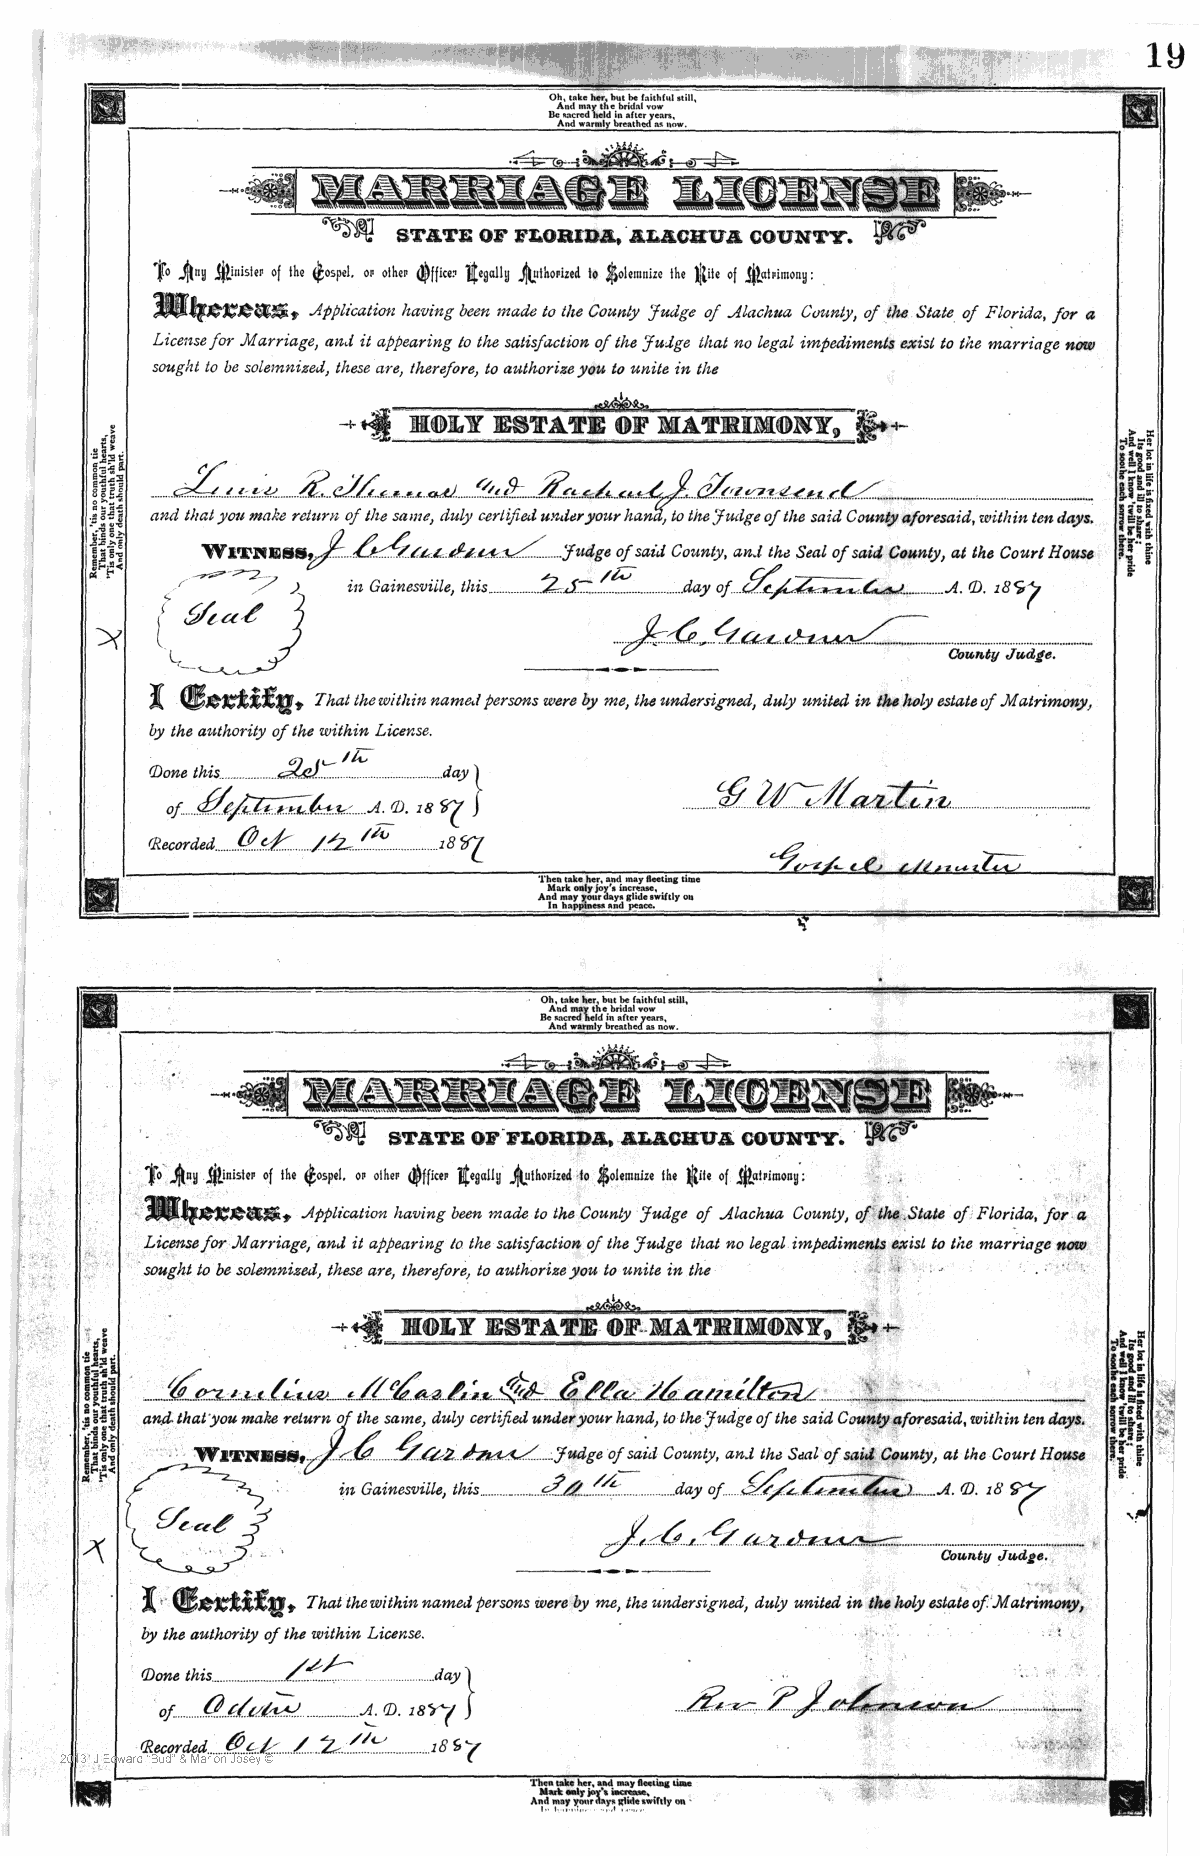 19
Oh, take her, but be faithful still,
And may the bridal vow
Be sacred held in after years,
And warmly breathed as now.
MARRIAGE LICENSE
STATE OF FLORIDA, ALACHUA COUNTY.
To Any Minister of the Gospel, or other Officer Legally Authorized to Solemnize the Rite of Matrimony:
Whereas, Application having been made to the County Judge of Alachua County, of the State of Florida, for a
License for Marriage, and it appearing to the satisfaction of the Judge that no legal impediments exist to the marriage now
sought to be solemnized, these are, therefore, to authorize you to unite in the
HOLY ESTATE OF MATRIMONY,
Remember, 'tis no common tie
That binds our youthful hearts,
'Tis only one that truth sh'ld weave
And only death should part.
Her lot in life is fixed with thine
Its good and ill to share;
And well I know 'twill be her pride
To soothe each sorrow there.
R. Thomas and Rachael J. Townsend
and that you make return of the same, duly certified under your hand, to the Judge of the said County aforesaid, within ten days.
WITNESS, J C Gardner Judge of said County, and the Seal of said County, at the Court House
in Gainesville, this 25th day of September A. D. 1887
Seal
J. C. Gardner
County Judge.
X
I Certify, That the within named persons were by me, the undersigned, duly united in the holy estate of Matrimony,
by the authority of the within License.
Done this 25th day
of September A. D. 1887
G W Martin
Recorded Oct 12th 1887
Gospel Minister
Then take her, and may fleeting time
Mark only joy's increase,
And may your days glide swiftly on
In happiness and peace.
Oh, take her, but be faithful still,
And may the bridal vow
Be sacred held in after years,
And warmly breathed as now.
MARRIAGE LICENSE
STATE OF FLORIDA, ALACHUA COUNTY.
To Any Minister of the Gospel, or other Officer Legally Authorized to Solemnize the Rite of Matrimony:
Whereas, Application having been made to the County Judge of Alachua County, of the State of Florida, for a
License for Marriage, and it appearing to the satisfaction of the Judge that no legal impediments exist to the marriage now
sought to be solemnized, these are, therefore, to authorize you to unite in the
HOLY ESTATE OF MATRIMONY,
Remember, 'tis no common tie
That binds our youthful hearts,
'Tis only one that truth sh'ld weave
And only death should part.
Her lot in life is fixed with thine
Its good and ill to share;
And well I know 'twill be her pride
To soothe each sorrow there.
Cornelius McCaslin and Ella Hamilton
and that you make return of the same, duly certified under your hand, to the Judge of the said County aforesaid, within ten days.
WITNESS, J C Gardner Judge of said County, and the Seal of said County, at the Court House
in Gainesville, this 30th day of September A. D. 1887
Seal
J. C. Gardner
County Judge.
X
I Certify, That the within named persons were by me, the undersigned, duly united in the holy estate of Matrimony,
by the authority of the within License.
Done this 1st day
of A. D. 1887
Rev P Johnson
Recorded Oct 12th 1887
2013 J Edward "Bud" & Marion Josey ©
Then take her, and may fleeting time
Mark only joy's increase,
And may your days glide swiftly on
In happiness and peace